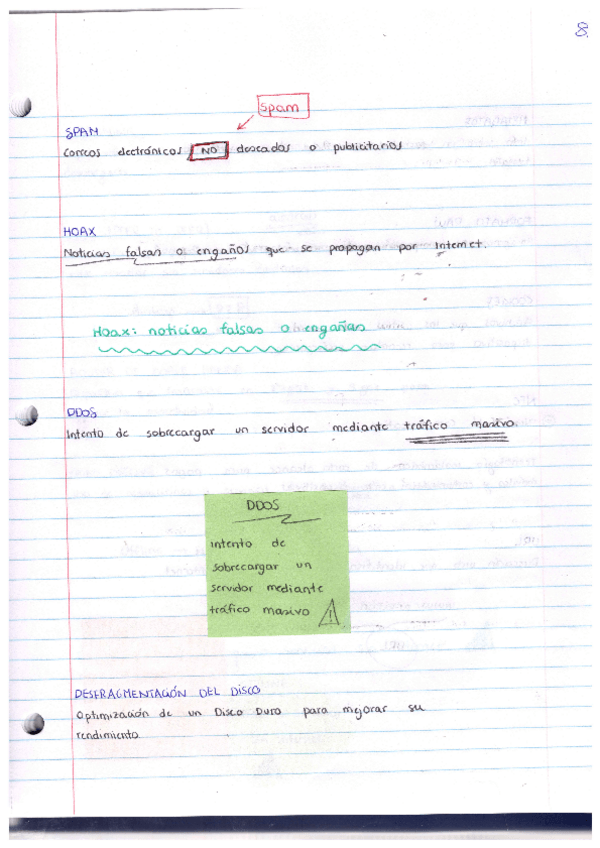 8.
Spam
SPAM
Correos electrónicos NO deseados o publicitarios
HOAX
Noticias falsas o engaños que se propagan por Internet.
Hoax: noticias falsas o engañas
DDOS
Intento de sobrecargar un servidor mediante tráfico masivo.
DDOS
intento de
sobrecargar un
servidor mediante
tráfico masivo
DESFRAGMENTACIÓN DEL DISCO
Optimización de un Disco Duro para mejorar su
rendimiento.